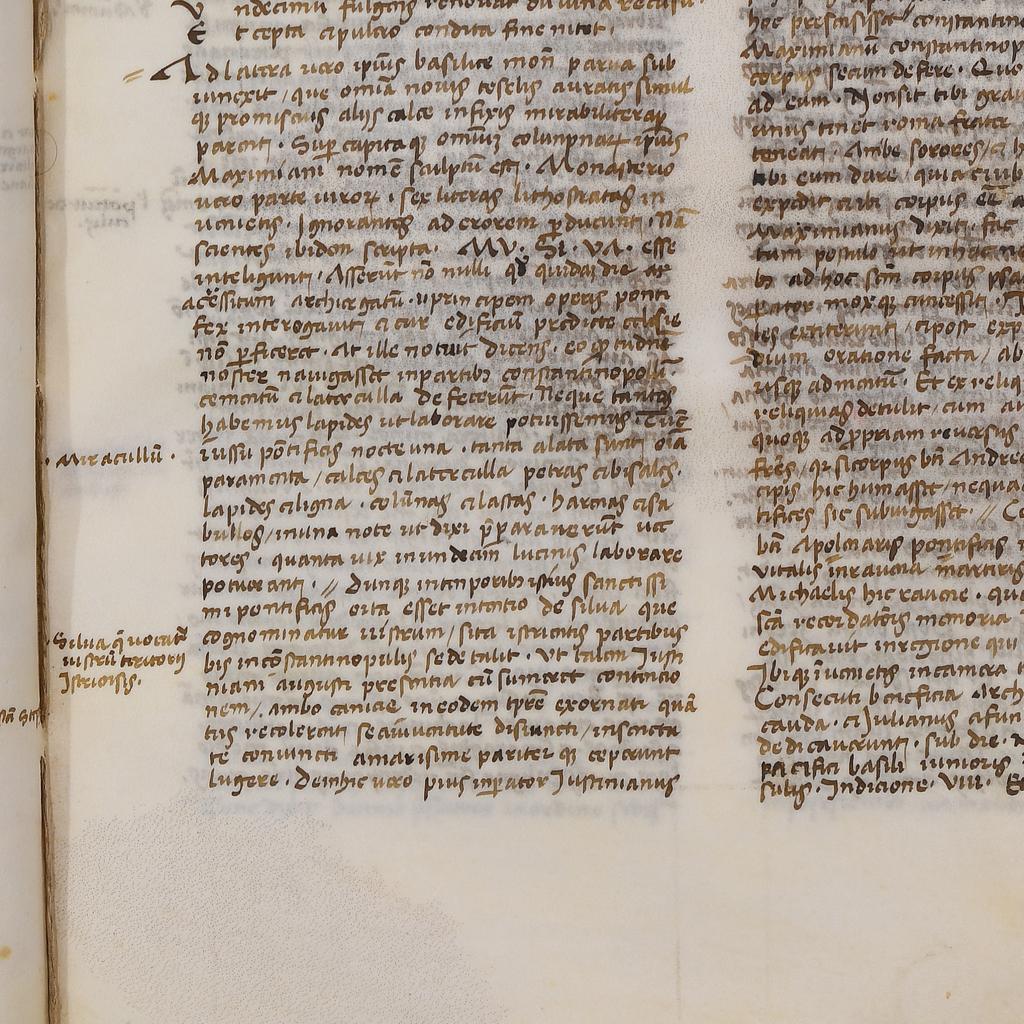 V ndecimu fulgens renovat
E t cepta cipulcro condita fine nitet.
Ad latera uero ipius basilice mon parua sub
iunexit / que omia novis teselis auratis simul
q; promiscuis alijs calce infixis mirabiliter ap
parent. Sup capita q; omniu colunpnaꝝ ipius
Maximiani nomē sculptū est. Monasterio
uero parte viroꝝ. sex literas lithostratas in
uenietis. Ignorantes ad erorem pducunt. Nā
scientes ibidem scripta. MV. SI. VA. esse
inteligunt. Asserūt nō nulli qd quidaz die ac
acessitum archiergatū. principem operis ponti
fex interogauit cicur edificiū predicte eclesie
nō pficeret. At ille notuit dicens. eo q tudinc
noster navigasset inpartibȝ constantinopolū.
cemētū cilaterculla defecerūt. Neque tantos
habemus lapides utlaborare potuissemus. Tūc
iussu pōtificis nocte una. tanta alata sunt oīa
paramenta / calces cilaterculla petras cibisales.
lapides ciligna. colūnas cilastas. harenas cisa
bullos / inuna note ut dixi pparauerūt uec
tores. quanta uix inundecim lucinis laborare
potuerant. // Dunq; intenporibȝ istius sanctissi
mi pontificis orta esset intentio de silva que
cognominatur uistrum / sita istrientis partibus
bis incōstantinopulis sede talit. Ut talem Justi
niani augusti presentia cū sumeret contentio
nem /. ambo canicie ineodem tpre exornati quā
tus recolerent seaiuuentute disiuncti / insenecta
te coniuncti amarisime pariter q; ceperunt
lugere. Deinhic uero pius inpator Justinianus
. Miracullū .
Silva q uocatr
uistrū teritorij
Istriensis.
hoc presensisset constantino
Maximianū constantinop
corpus secum deferre. Quo
ad eum. Nonsit tibi grau
unus tinet roma frater
teneat. Ambe sorores / ci h
tibi eum dare. quia ci ub
expedit cibi corpus eē a
Maximianus dixit. fac
tum postulo ut inhac n
bȝ ad hoc scm corpus psa
perator mox q; concessit.
les exiterunt / cipost exp
dium oratione facta / ab
usq; ad mentū. Et ex reliq
reliquias detulit / cum
quoq; adppriam reuersus
frēs / q sicorpus bti Andree
cipis hic humasset / nequa
tifices sic subiugasset. // C
bti Apolinaris pontificis
vitalis inrauena martiris
Michaelis hic rauene. qu
scā recordatōis memoria
edificauit inregione qu
Ibiq; iuenietis incamera
Consecuti beneficia Arch
cauda. ci Julianus
dedicauerunt. sub die.
pacifici basili iunioris
sulis. Indicione. VIII. E